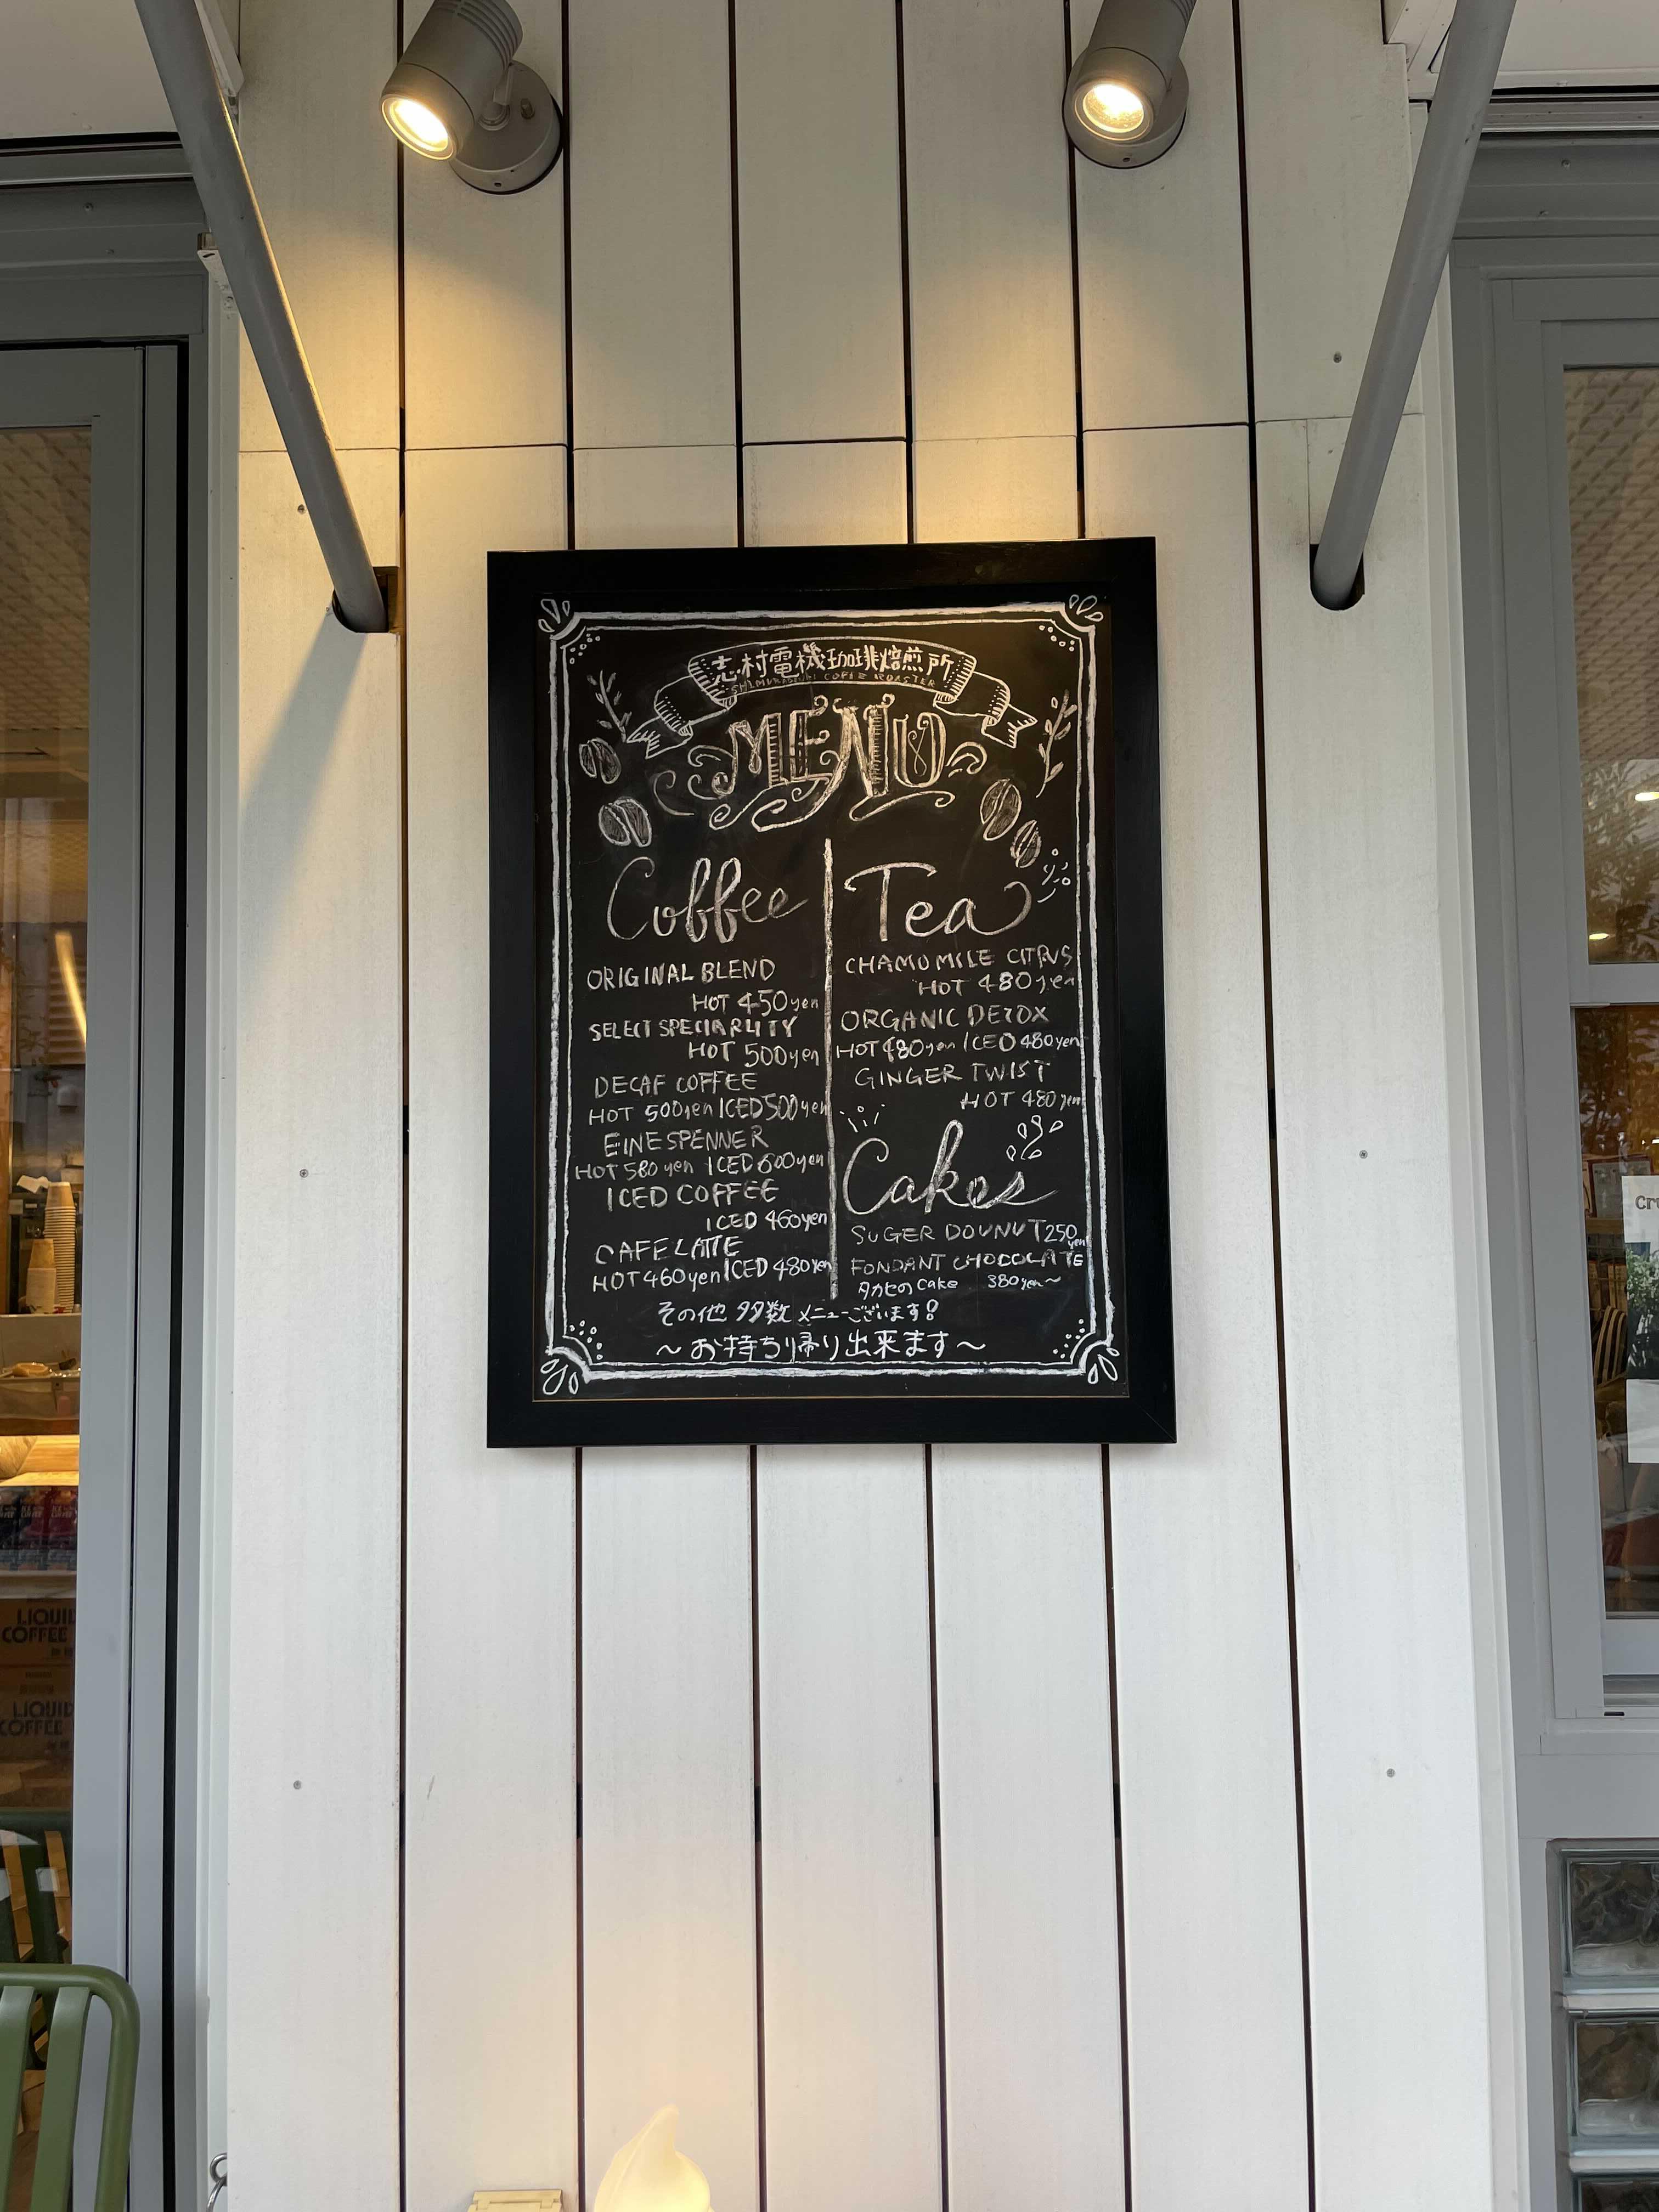 志村電機珈琲焙煎所
COFEE ROASTER
MENU
Coffee
ORIGINAL BLEND
HOT 450yen
SELECT SPECIARLITY
HOT 500yen
DECAF COFFEE
HOT 500yen ICED 500yen
EINESPENNER
HOT 580 yen ICED 600yen
ICED COFFEE
ICED 460yen
CAFE LATTE
HOT 460yen ICED 480yen
Tea
CHAMOMILE CITRUS
HOT 480yen
ORGANIC DETOX
HOT 480yen ICED 480yen
GINGER TWIST
HOT 480yen
Cakes
SUGER DOUNUT 250yen
FONDANT CHOCOLATE
タカセのcake 380yen〜
その他 多数 メニューございます!
〜お持ち帰り出来ます〜
LIQUID
COFFEE
LIQUID
COFFEE